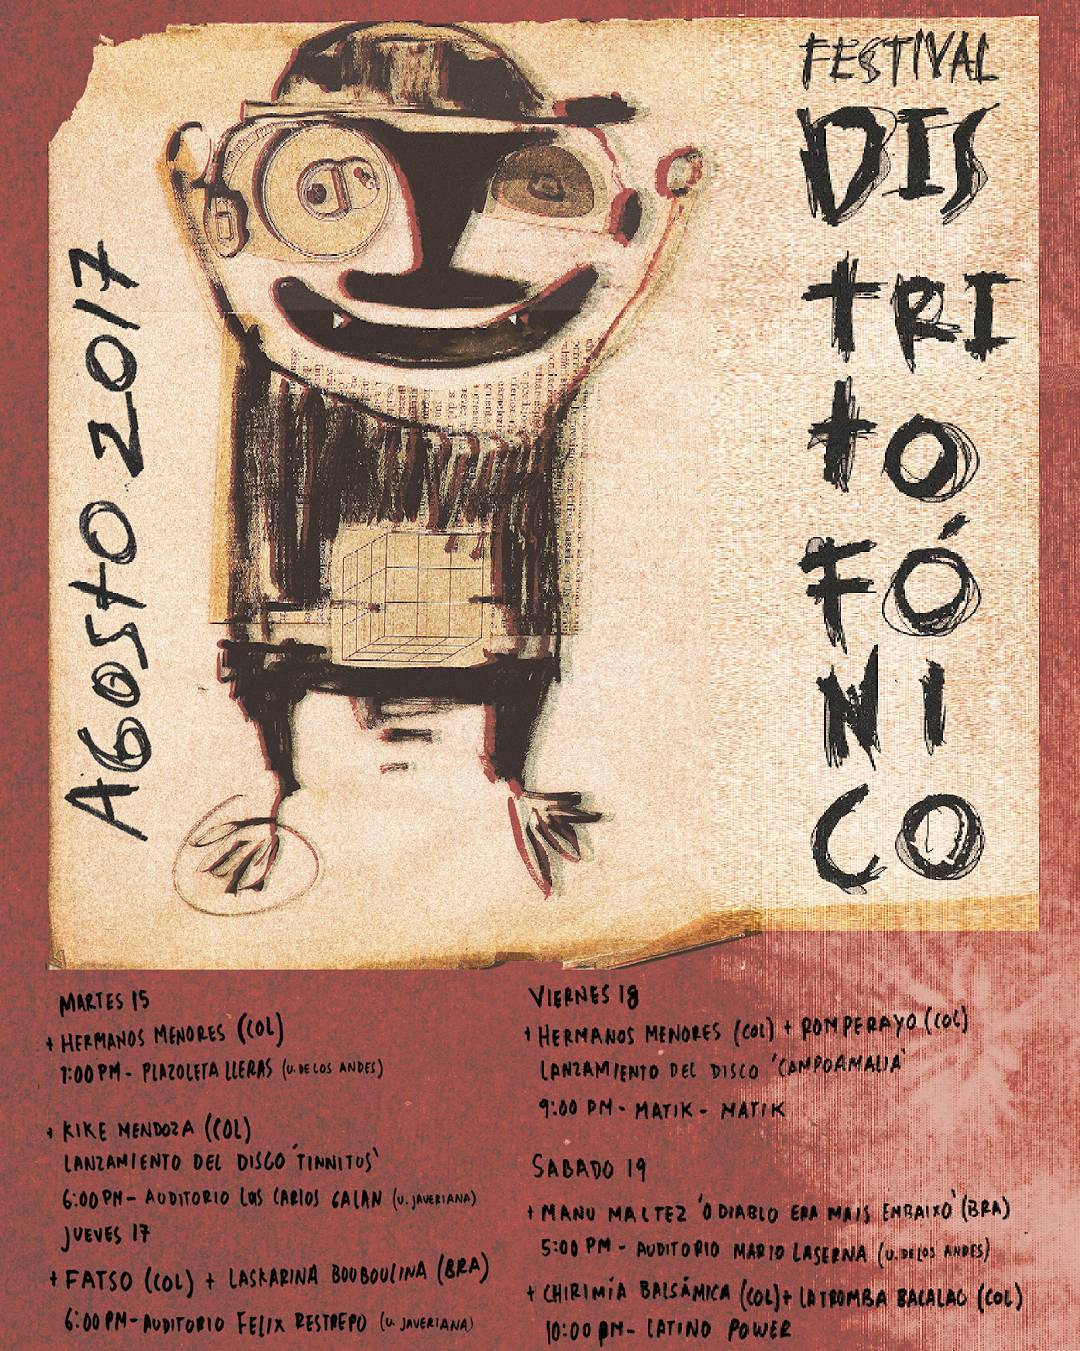 FESTIVAL
DIS
TRI
TO
FÓ
NI
CO
AGOSTO 2017
MARTES 15
+ HERMANOS MENORES (COL)
1:00 PM - PLAZOLETA LLERAS (U. DE LOS ANDES)
+ KIKE MENDOZA (COL)
LANZAMIENTO DEL DISCO 'TINNITUS'
6:00 PM - AUDITORIO LUIS CARLOS GALAN (U. JAVERIANA)
JUEVES 17
+ FATSO (COL) + LASKARINA BOUBOULINA (BRA)
6:00 PM - AUDITORIO FELIX RESTREPO (U. JAVERIANA)
VIERNES 18
+ HERMANOS MENORES (COL) + ROMPERAYO (COL)
LANZAMIENTO DEL DISCO 'CAMPOAMALIA'
9:00 PM - MATIK - MATIK
SABADO 19
+ MANU MALTEZ 'O DIABLO ERA MAIS EMBAIXO' (BRA)
5:00 PM - AUDITORIO MARIO LASERNA (U. DE LOS ANDES)
+ CHIRIMÍA BALSÁMICA (COL) + LA TROMBA BACALAO (COL)
10:00 PM - LATINO POWER